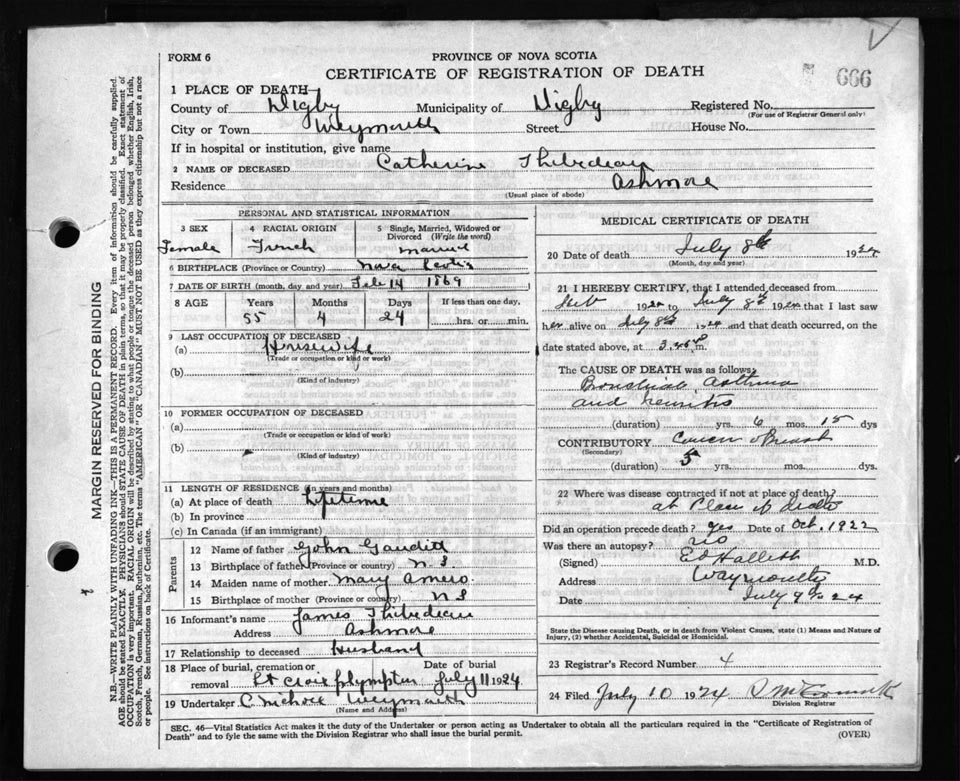 FORM 6
PROVINCE OF NOVA SCOTIA
CERTIFICATE OF REGISTRATION OF DEATH
666
1 PLACE OF DEATH
County of Digby Municipality of Digby Registered No.
(For use of Registrar General only)
City or Town Weymouth Street House No.
If in hospital or institution, give name
2 NAME OF DECEASED Catherine Thibedeau
Residence Ashmore
(Usual place of abode)
PERSONAL AND STATISTICAL INFORMATION
3 SEX 4 RACIAL ORIGIN 5 Single, Married, Widowed or Divorced (Write the word)
Female French Married
6 BIRTHPLACE (Province or Country) Nova Scotia
7 DATE OF BIRTH (month, day and year) Feb 14 1869
8 AGE Years Months Days If less than one day,
55 4 24 hrs. or min.
9 LAST OCCUPATION OF DECEASED
(a) Housewife
(Trade or occupation or kind of work)
(b)
(Kind of industry)
10 FORMER OCCUPATION OF DECEASED
(a)
(Trade or occupation or kind of work)
(b)
(Kind of industry)
11 LENGTH OF RESIDENCE (in years and months)
(a) At place of death Lifetime
(b) In province
(c) In Canada (if an immigrant)
Parents
12 Name of father John
13 Birthplace of father (Province or country) N.S
14 Maiden name of mother Mary Amero
15 Birthplace of mother (Province or country) N S
16 Informant's name James Thibedeau
Address Ashmore
17 Relationship to deceased Husband
18 Place of burial, cremation or removal Plympton Date of burial July 11 1924
19 Undertaker C Weymouth
(Name and Address)
MEDICAL CERTIFICATE OF DEATH
20 Date of death July 8th 1924
(Month, day and year)
21 I HEREBY CERTIFY, that I attended deceased from
1924 to July 8th 1924 that I last saw
her alive on July 8th 1924 and that death occurred, on
date stated above, at 3.45 p m.
The CAUSE OF DEATH was as follows:
Bronchial Asthma
and neuritis
(duration) yrs. 6 mos. 15 dys
CONTRIBUTORY Cancer of Breast
(Secondary)
(duration) 5 yrs. mos. dys.
22 Where was disease contracted if not at place of death?
at Place of death
Did an operation precede death? yes Date of Oct. 1922
Was there an autopsy? no
(Signed) M.D.
Address Weymouth
Date July 9th 24
State the Disease causing Death, or in death from Violent Causes, state (1) Means and Nature of
Injury, (2) whether Accidental, Suicidal or Homicidal.
23 Registrar's Record Number 4
24 Filed July 10 1924
Division Registrar
SEC. 46—Vital Statistics Act makes it the duty of the Undertaker or person acting as Undertaker to obtain all the particulars required in the "Certificate of Registration of
Death" and to fyle the same with the Division Registrar who shall issue the burial permit.
(OVER)
MARGIN RESERVED FOR BINDING
N.B.—WRITE PLAINLY WITH UNFADING INK—THIS IS A PERMANENT RECORD. Every item of information should be carefully supplied.
AGE should be stated EXACTLY. PHYSICIANS should STATE CAUSE OF DEATH in plain terms, so that it may be properly classified. Exact statement of
OCCUPATION is very important. RACIAL ORIGIN will be described by stating to what people or tongue the deceased person belonged whether English, Irish,
Scotch, French, German, Russian, Ruthenian, etc. The terms "AMERICAN" OR "CANADIAN" MUST NOT BE USED as they express citizenship but not a race
or people. See instructions on back of Certificate.